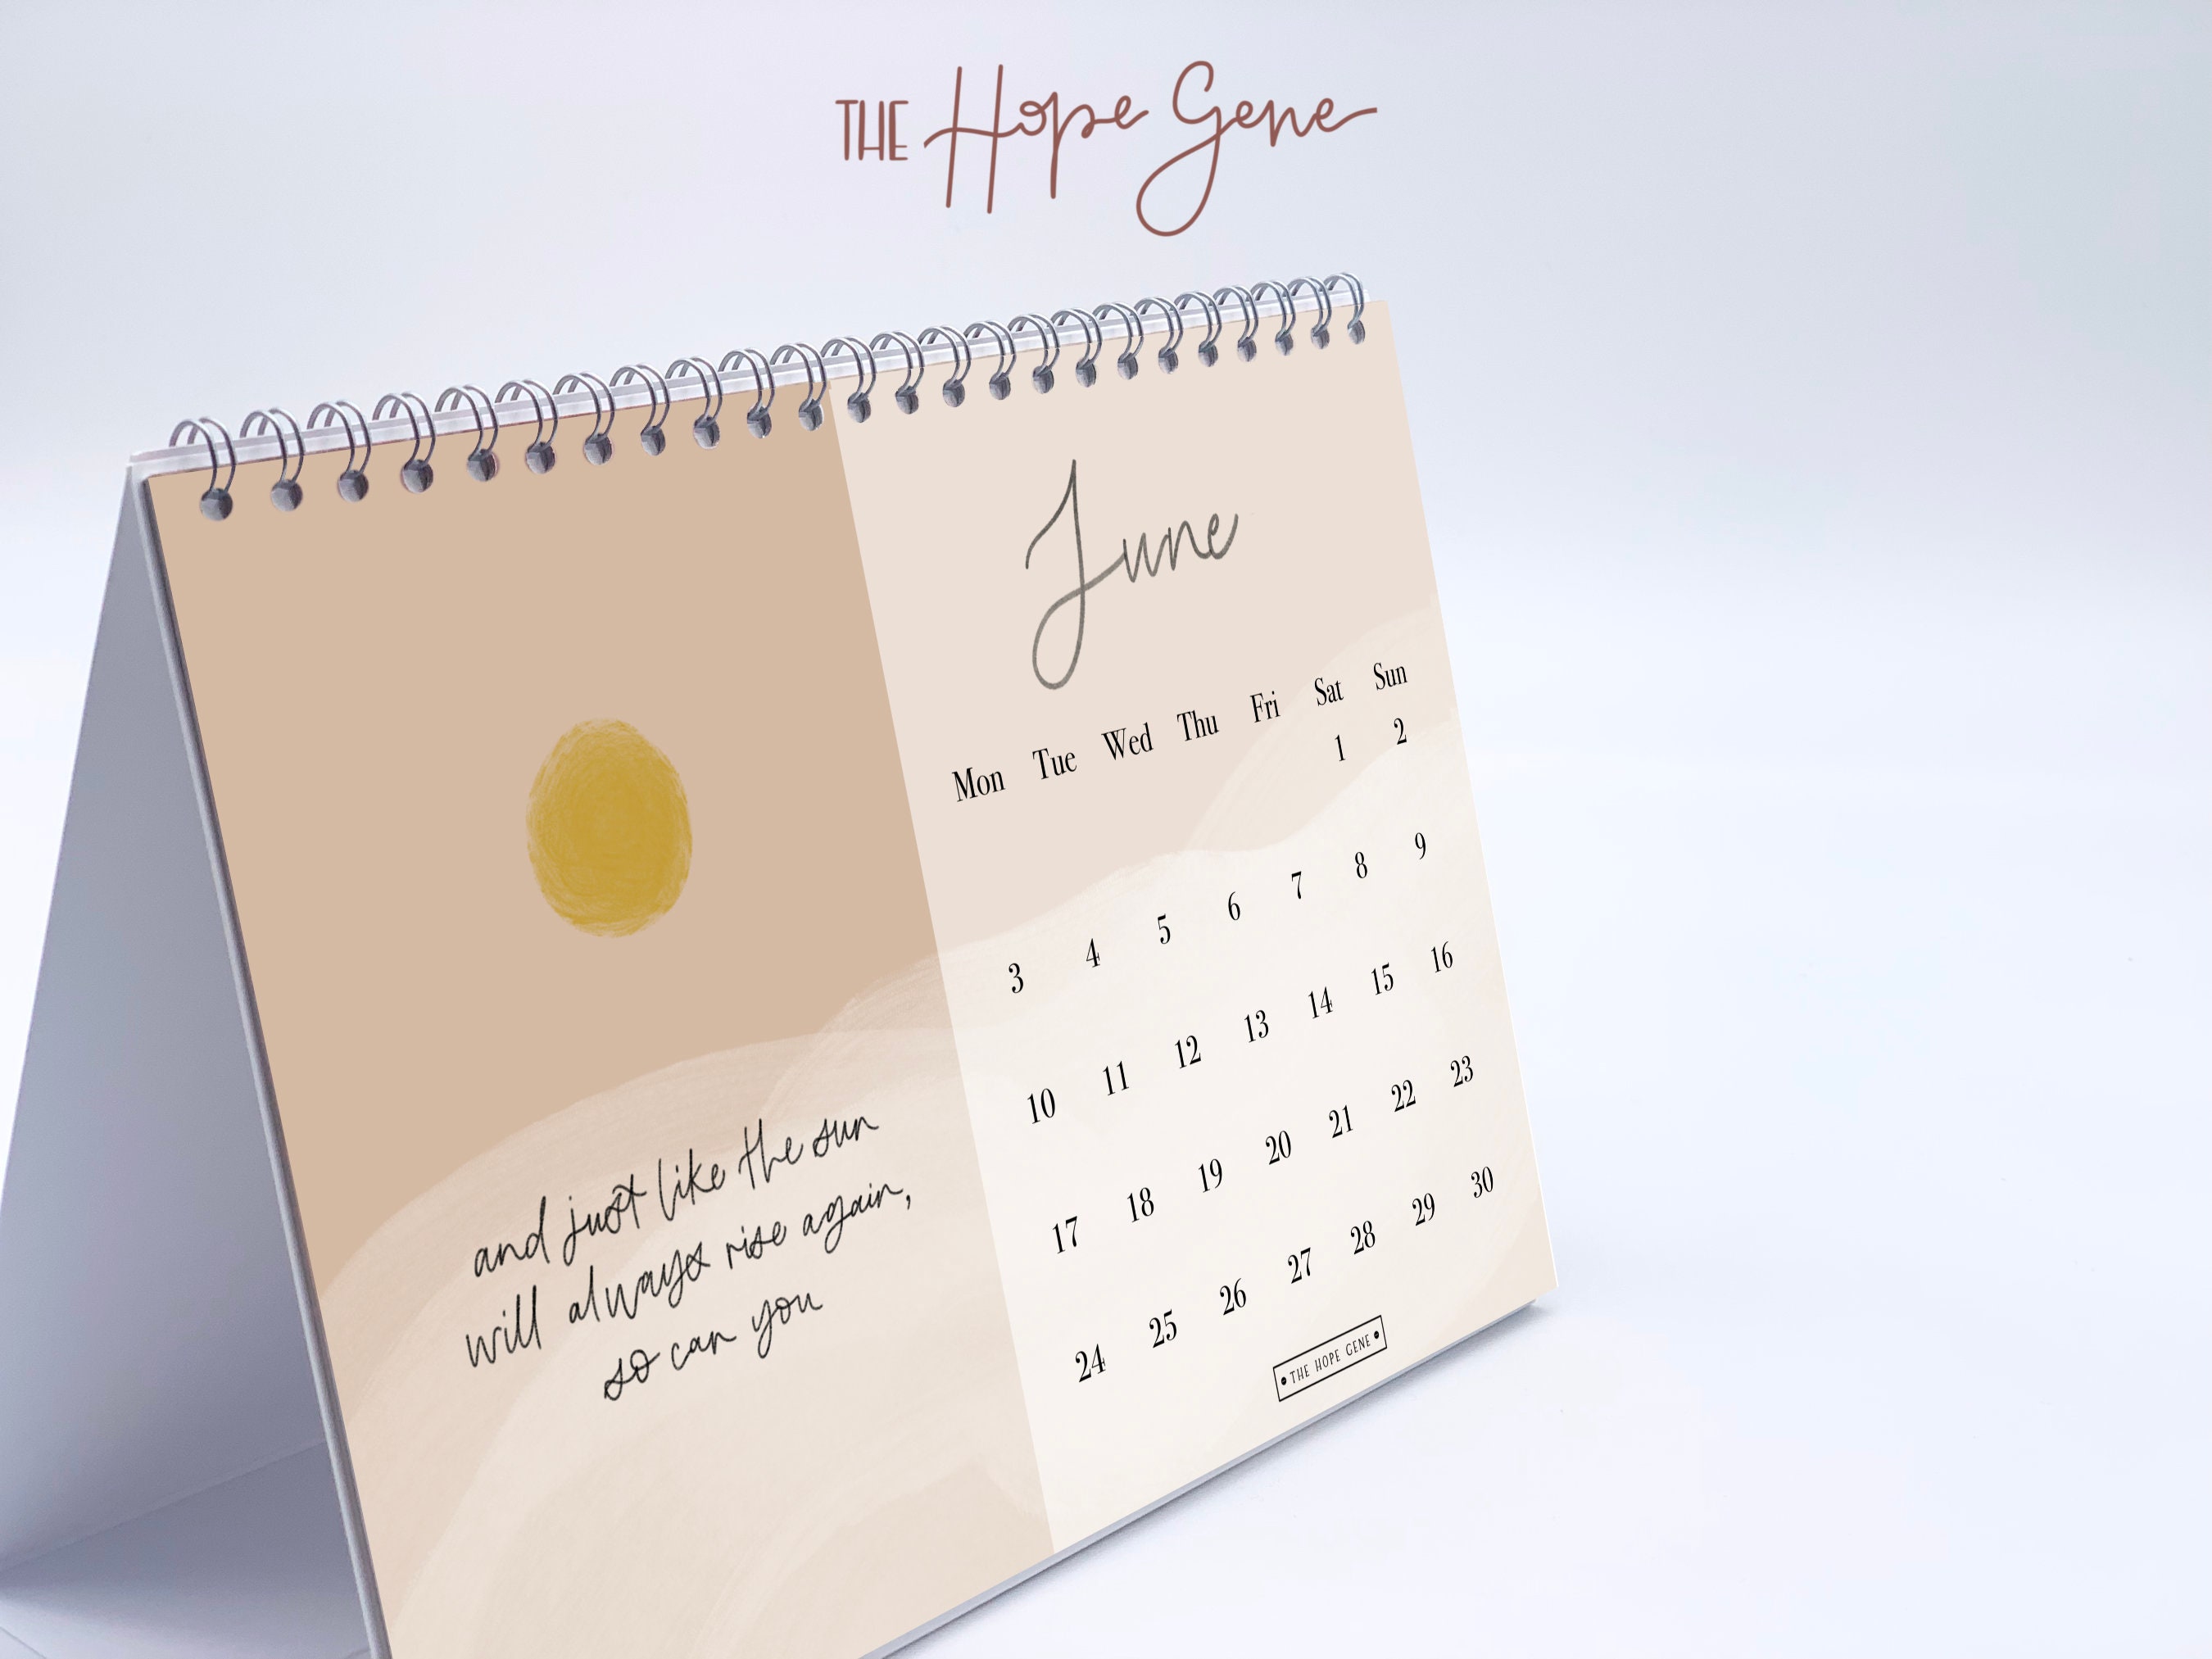 THE Hope Gene
and just like the sun
will always rise again,
so can you
June
Mon Tue Wed Thu Fri Sat Sun
1 2
3 4 5 6 7 8 9
10 11 12 13 14 15 16
17 18 19 20 21 22 23
24 25 26 27 28 29 30
THE HOPE GENE